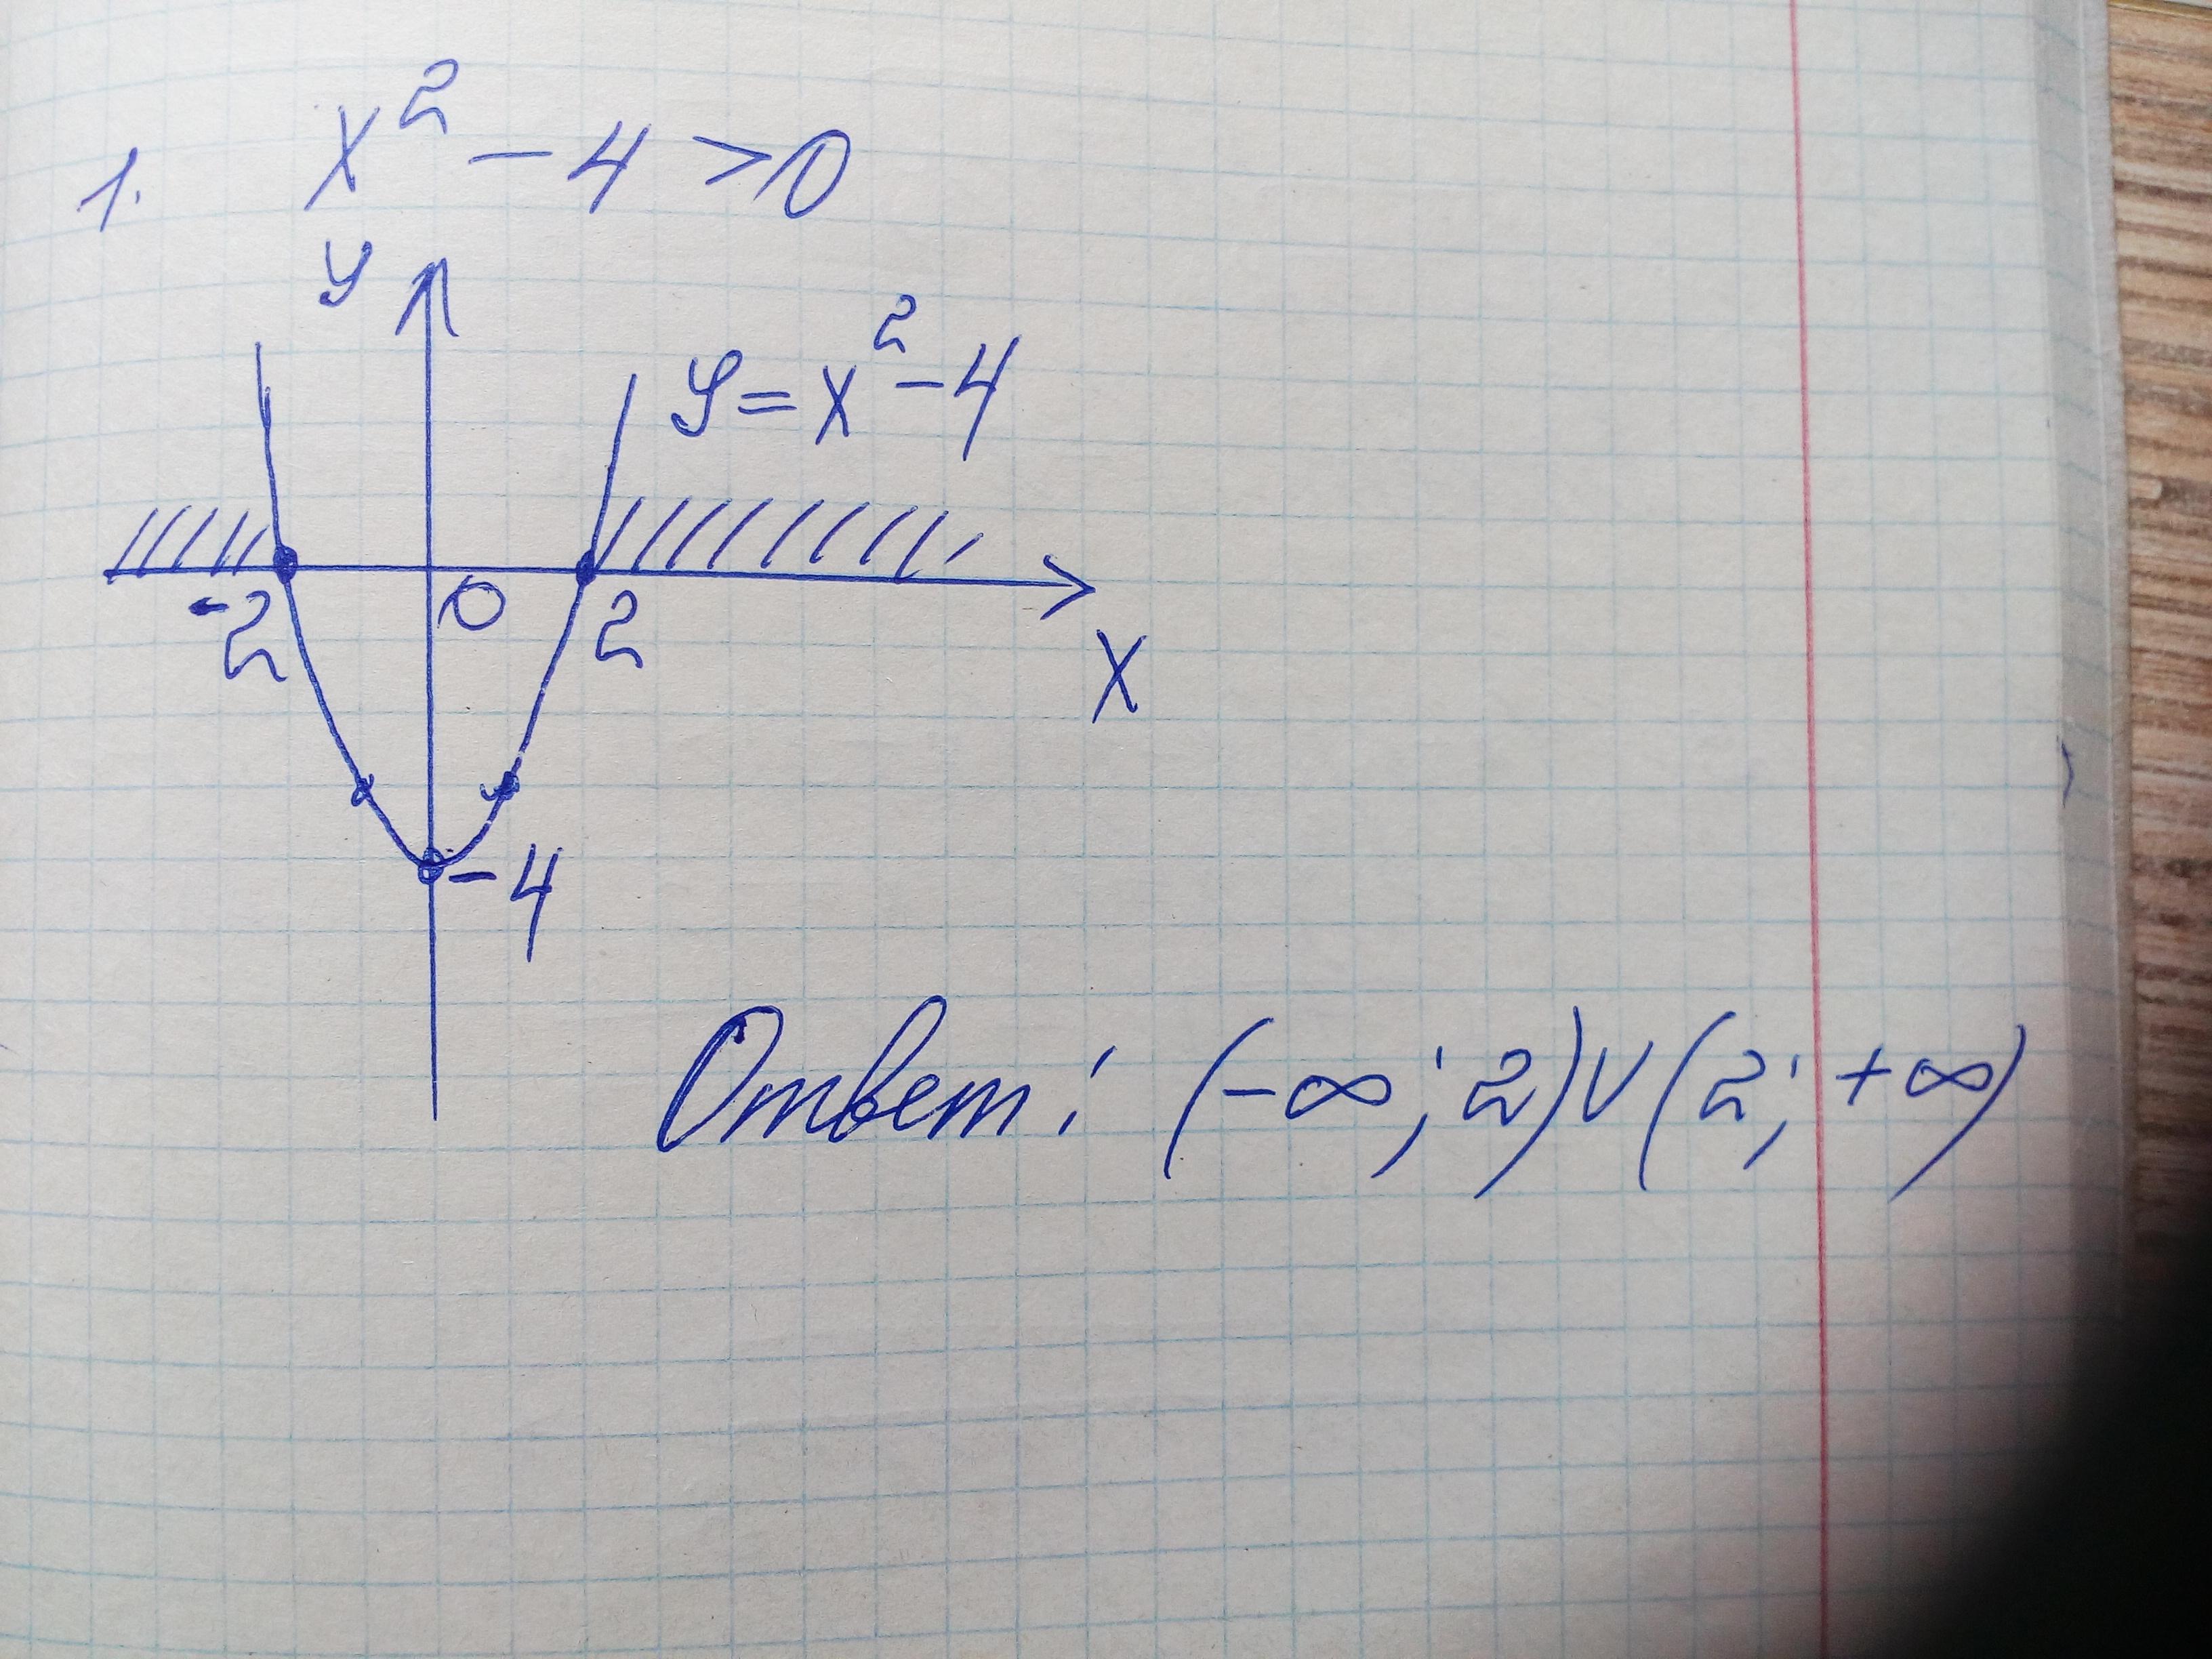 1. x² - 4 > 0
y
y = x² - 4
-2 0 2
x
-4
Ответ: (-∞; 2) ∪ (2; +∞)